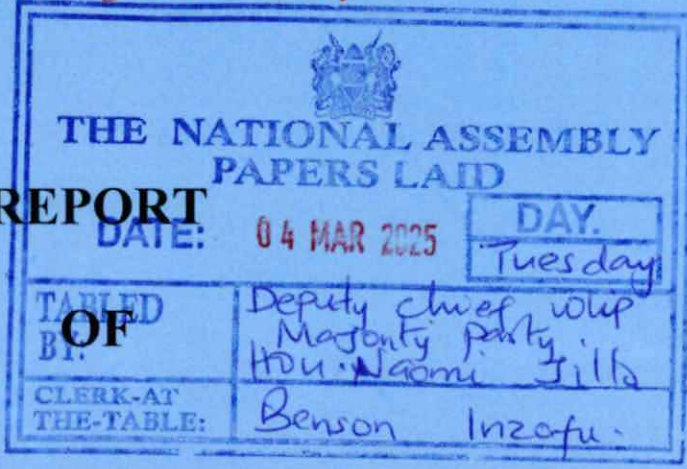 THE NATIONAL ASSEMBLY
PAPERS LAID
REPORT
DATE: 04 MAR 2025 DAY.
Tuesday
TABLED BY: Deputy chief whip
OF
Majority party.
Hon. Naomi Jillo
CLERK-AT THE-TABLE: Benson Inzofu.